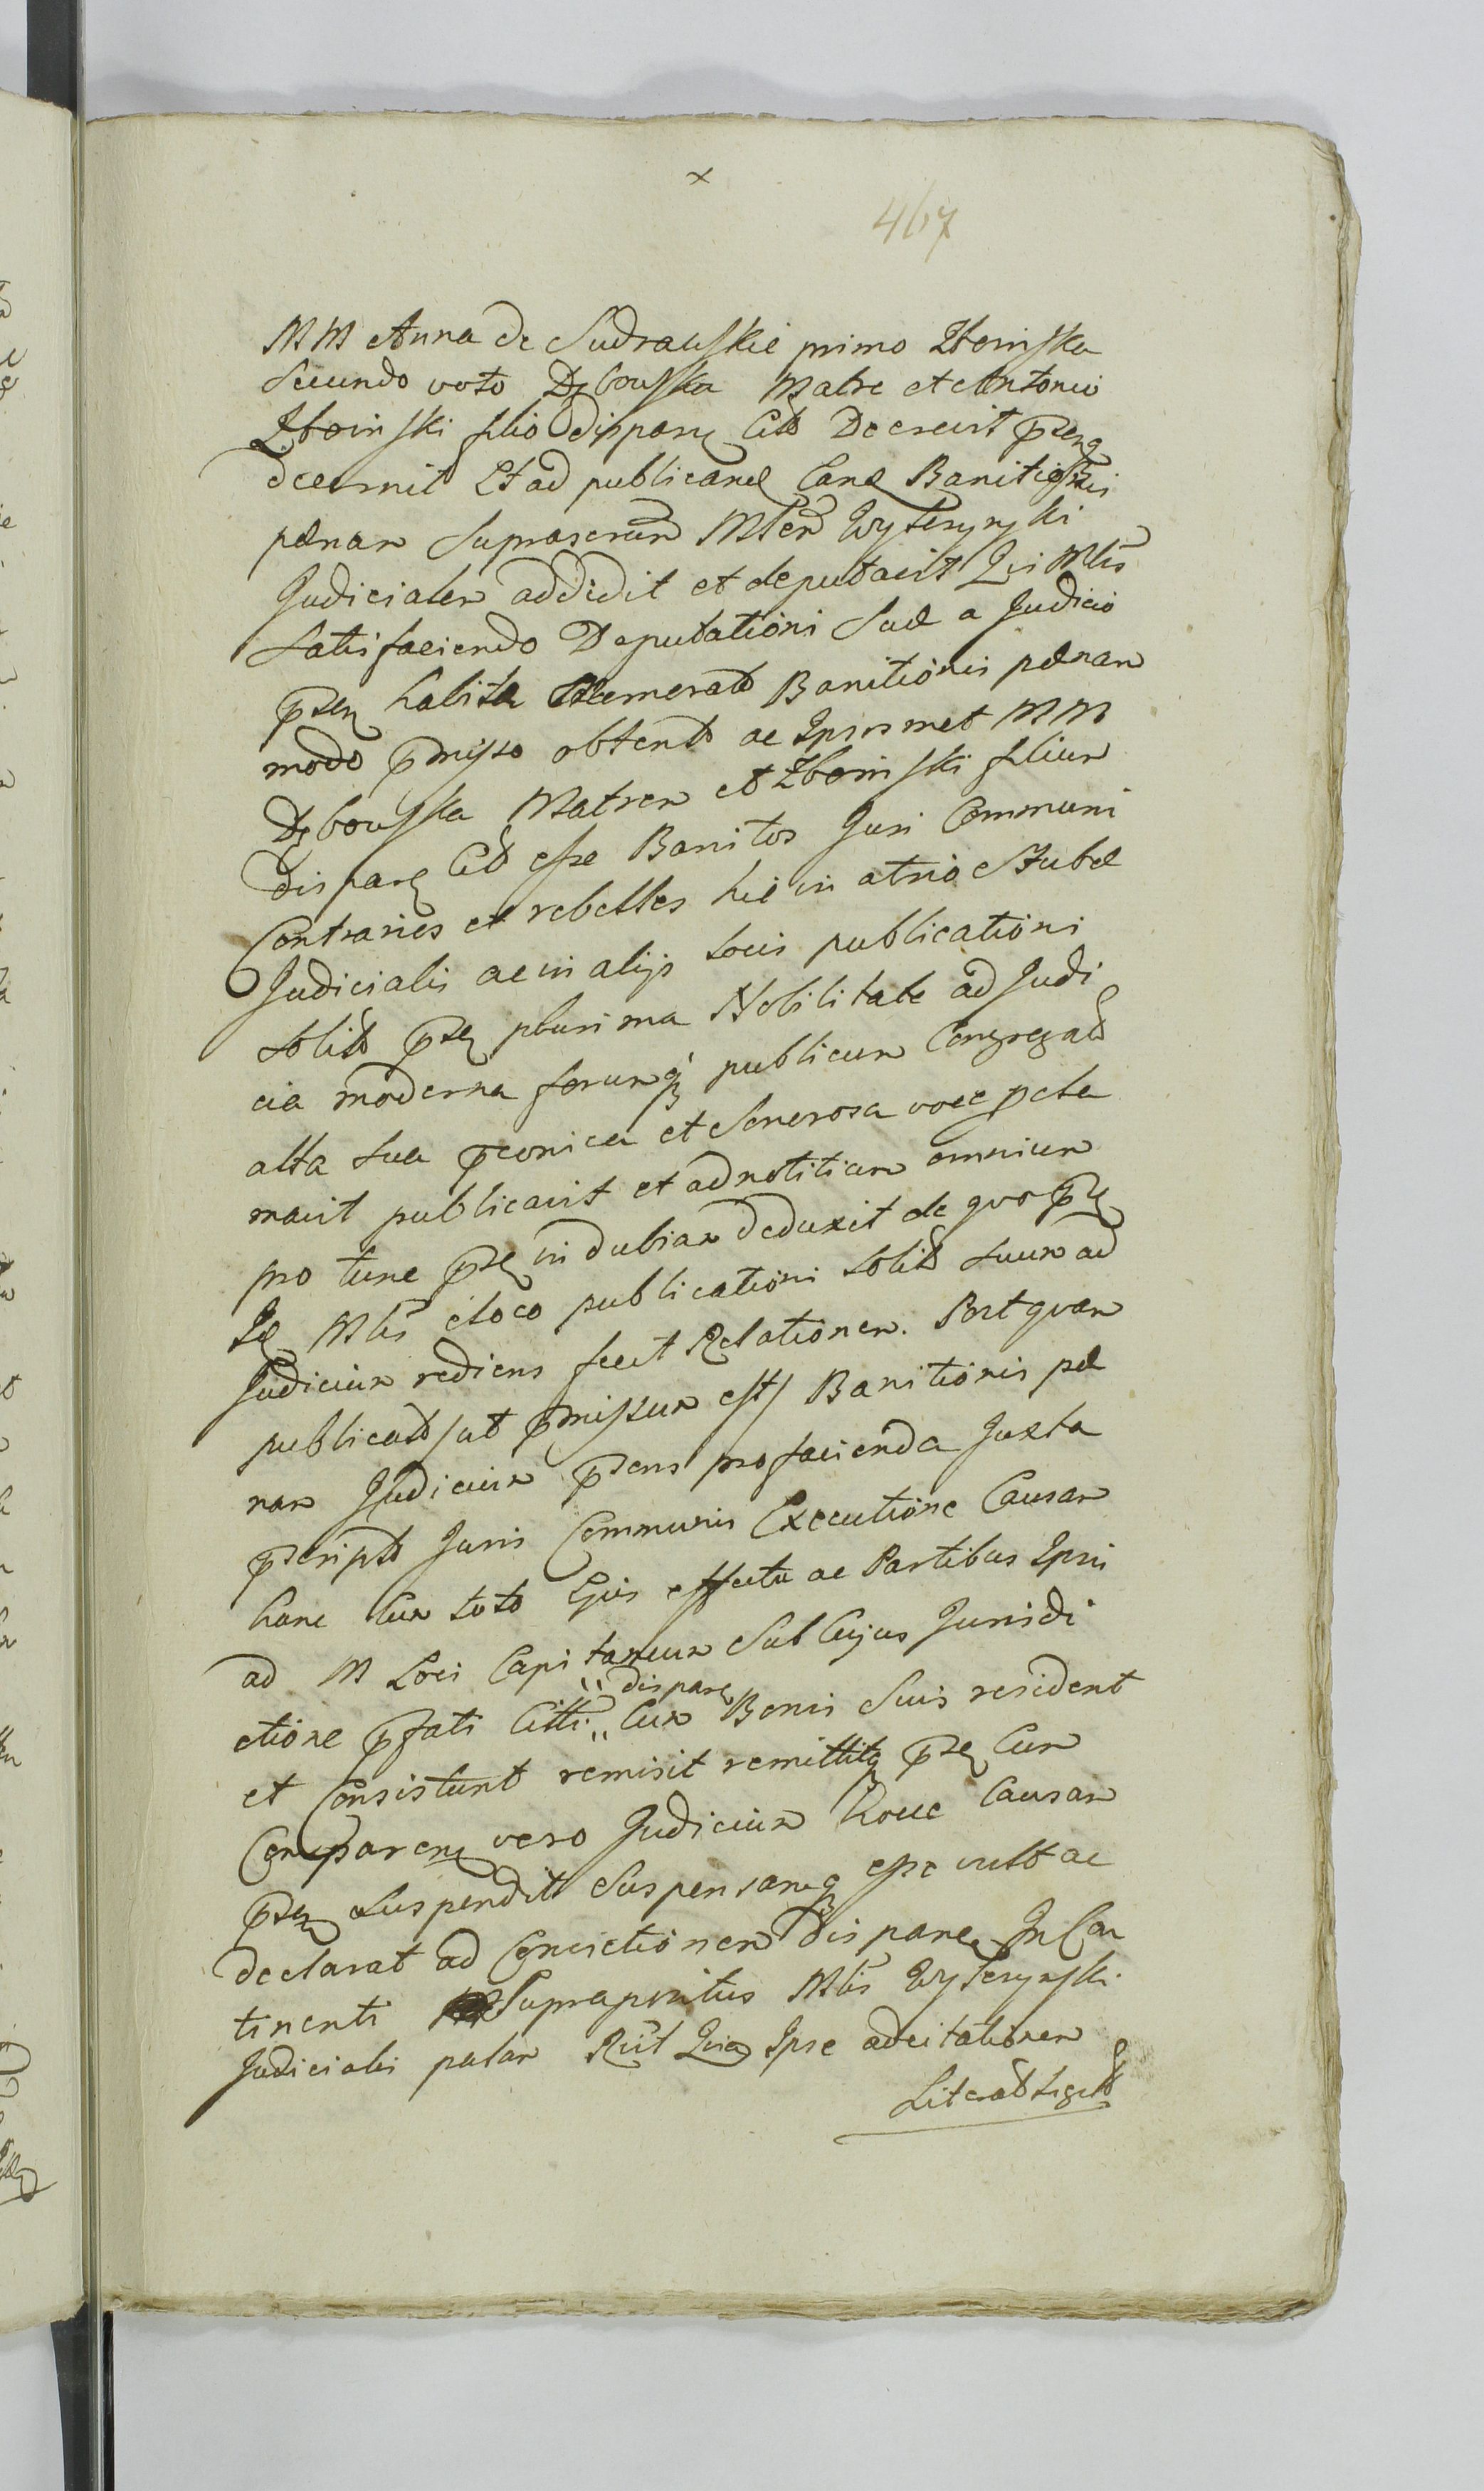 x
467
MM Anna de Sudrawskie primo Zboinska
Secundo voto Dębowska Matre et Antonio
Zboinski filio disparen Citt Decrevit pntq
decernit Et ad publicand hanc Banitionis
pænam suprascrtum Mlem Wyterzynski
Judicialem addidit et deputavit Qui Mlis
Satisfaciendo Deputationi Suæ a Judicio
pnti habitæ memorat Banitionis pænam
modo pmisso obtent ac Ipsosmet MM
Dębowska Matrem et Zboinski filium
disparen Citt esse Banitos Juri Communi
Contrarios et rebelles hic in atrio Stubæ
Judicialis ac in alijs locis publicationi
solit pnte plurima Nobilitate ad Judi
cia moderna forumq publicum Congregat
alta sua pconica et Sonorosa voce pcla
mavit publicavit et ad notitiam omnium
pro tunc pnt indubiam deduxit de quo pnt
Id Mlis e loco publicationi solit suum ad
Judicium rediens fecit Relationem. Post quam
publicat /ut pmissum est/ Banitionis pæ
nam Judicium pntens pro facienda Juxta
pscript Juris Communis Executione Causam
hanc Cum toto Ejus effectu ac Partibus Ipsis
ad M Loci Capitaneum Sub Cujus Jurisdi
disparen
ctione pfati Citti Cum Bonis Suis resident
et Consistunt remisit remittitq pnt Cum
Comparen vero Judicium hocce Causam
pntem suspendit Suspensamq esse vult ac
declarat ad Convictionem disparen In Con
tinenti Suprapositus Mlis Wyterzynski
Judicialis palam Rcit Quia Ipse ad citationem
Literat Legit